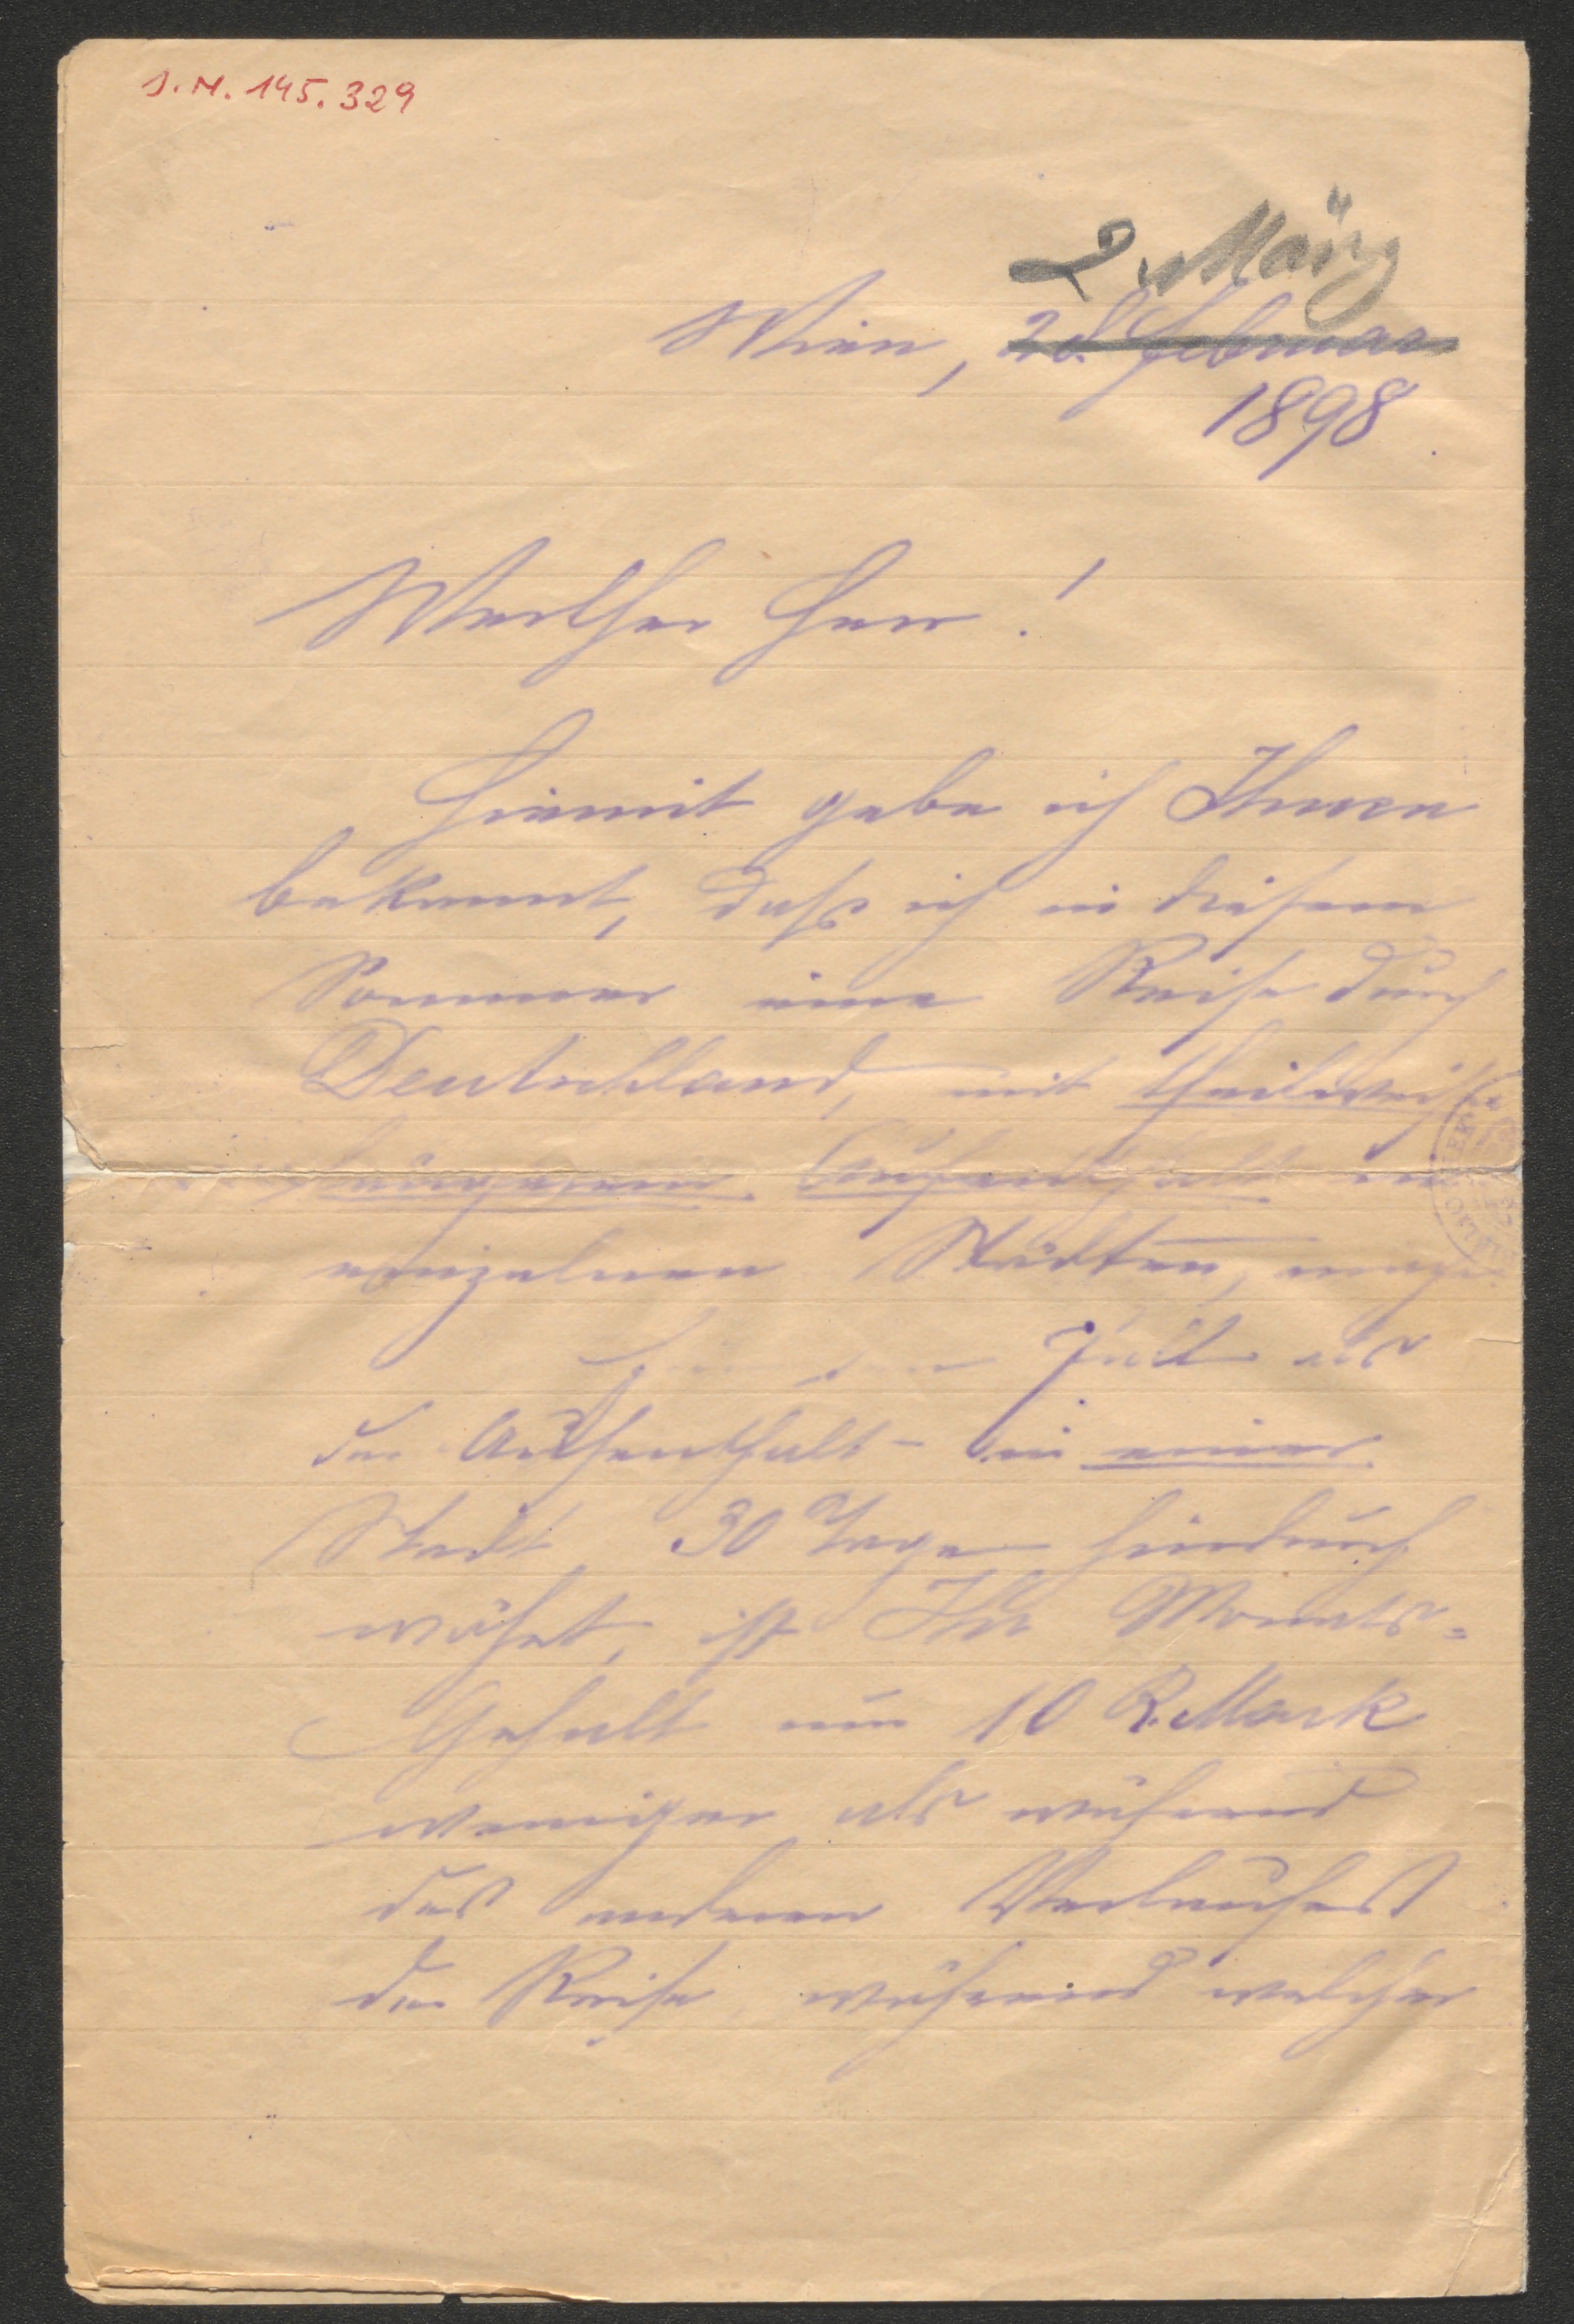 J.N. 145.329
2. März
Wien, 28. Februar
1898
Werther Herr!
Hiemit gebe ich Ihnen
bekannt, daß ich in diesem
Sommer eine Reise durch
Deutschland, mit theilweise
längerem Aufenthalt in
einzelnen Städten, mache
Zeit als
der Aufenthalt in einer
Stadt 30 Tage hindurch
währt, ist Ihr Monats-
Gehalt um 10 R. Mark
weniger als während
des anderen Verlaufes
der Reise, während welcher